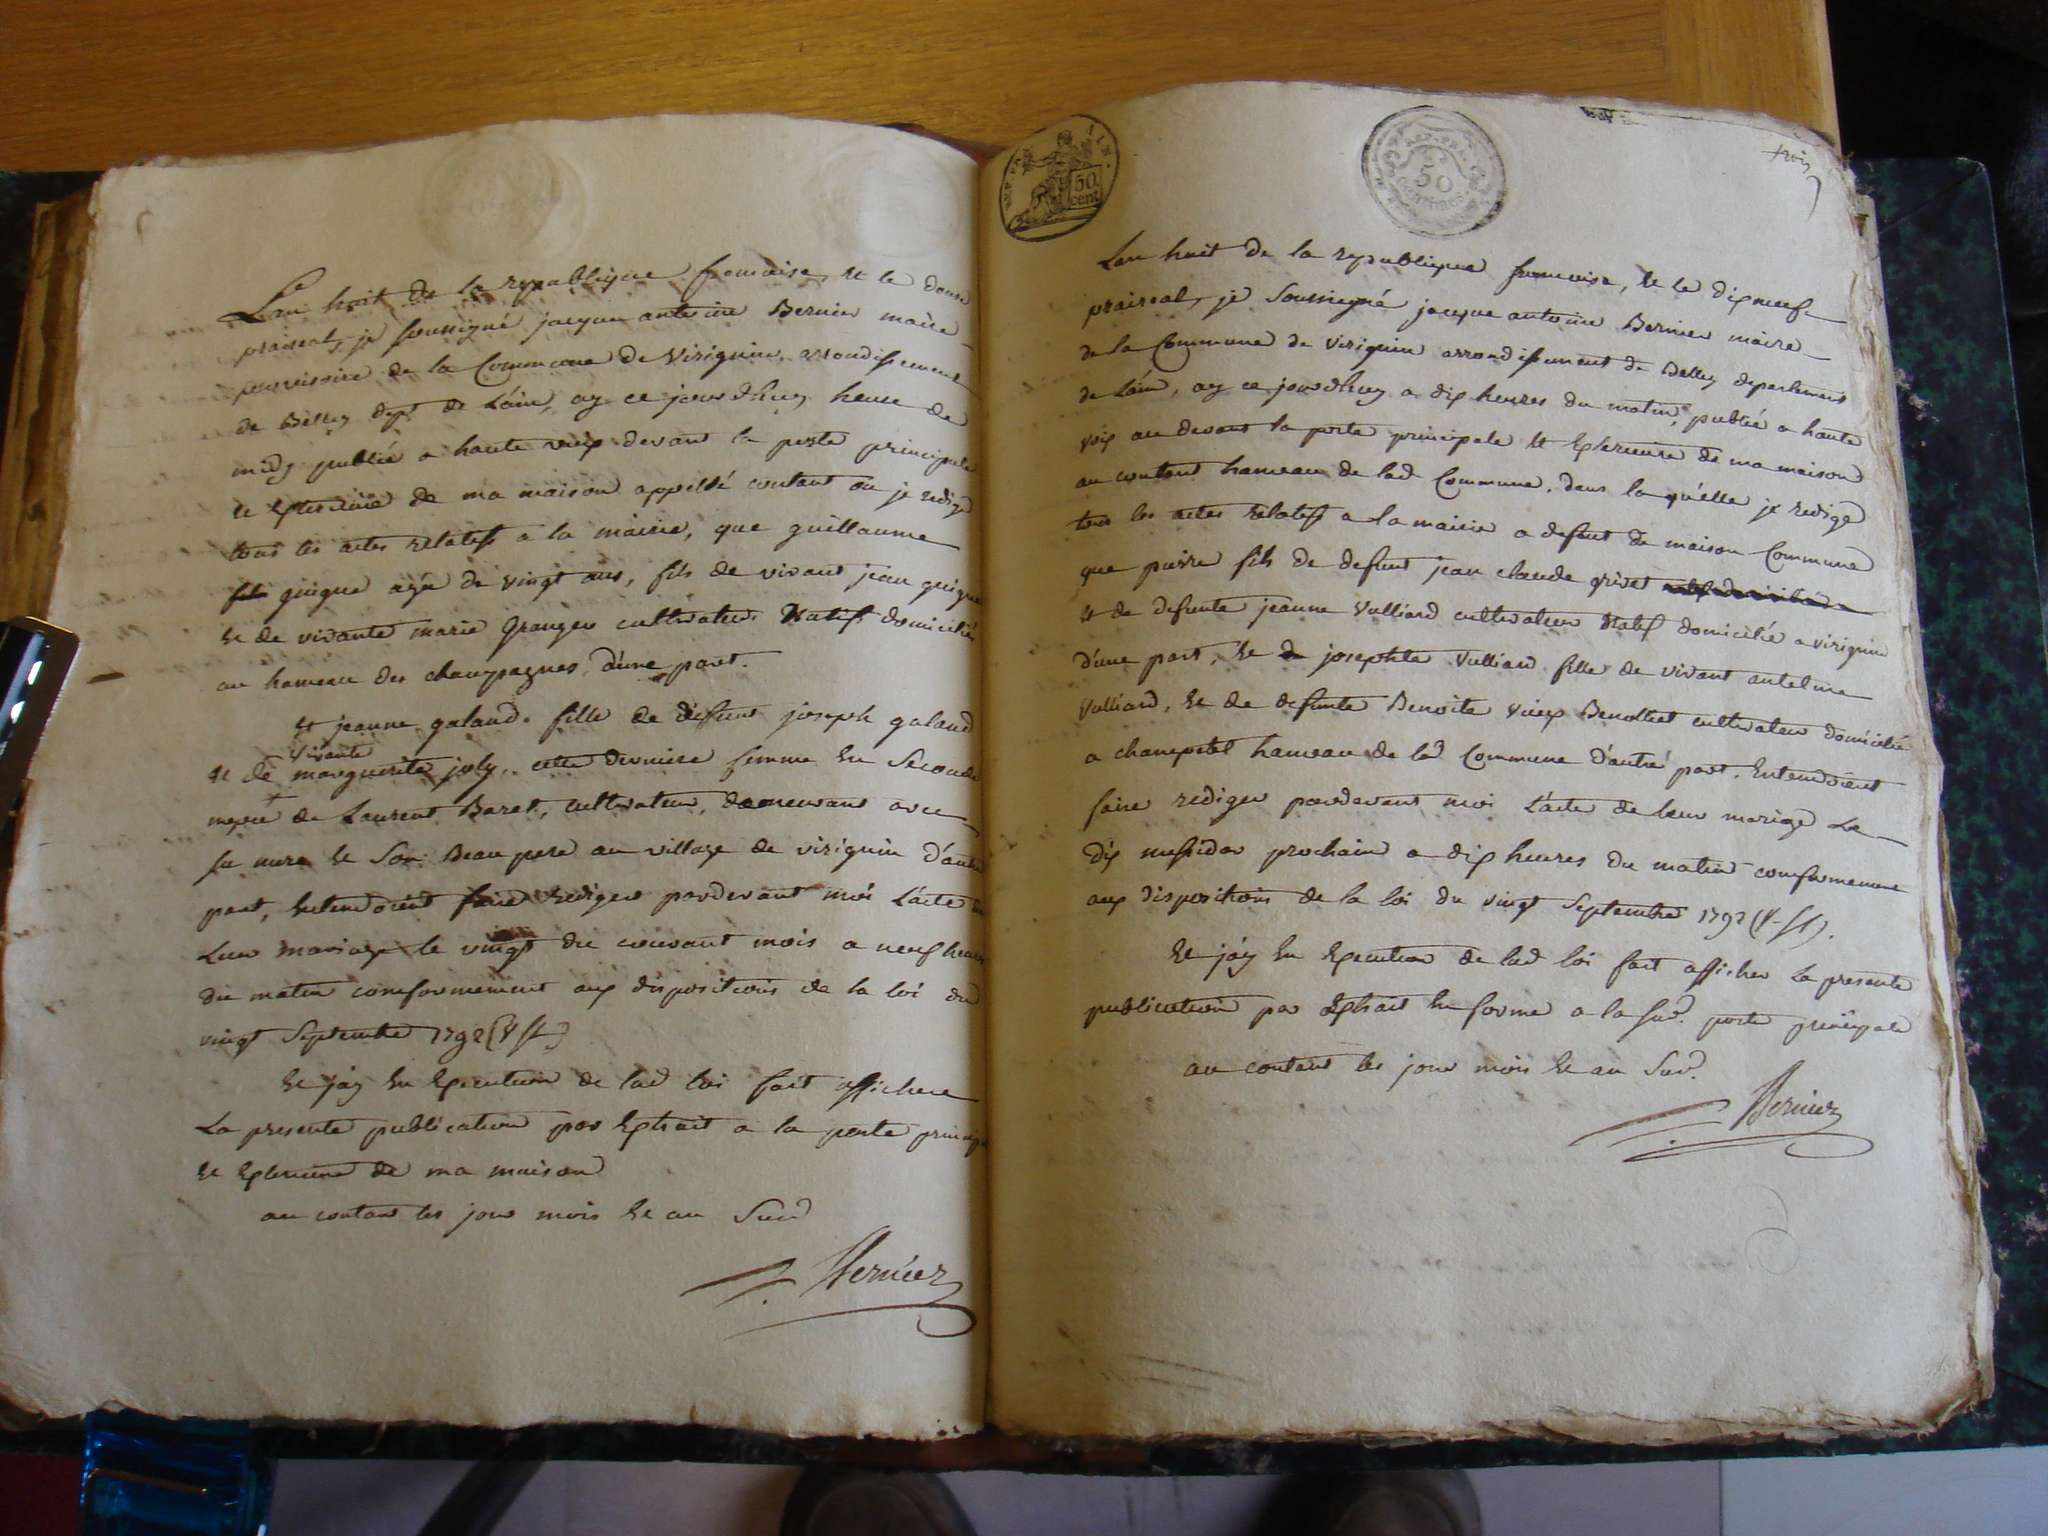 Lan huit de la republique francaise, et le douze
praireal, je soussigné jacque antoine Bernier maire
provisoire de la Commune de Virignin, arrondissement
de Belley dept de Láin, ay ce jourdhuy heure de
midy publié a haute voix devant la porte principale
et Exterieure de ma maison appellé coutant ou je redige
tous les actes relatifs a la mairie, que guillaume
guigue agé de vingt ans, fils de vivant jean guigue
et de vivante marie Granger cultivateurs Natifs domiciliés
au hameau des champagnes, d'une part.
et jeanne galand. fille de défunt joseph galand
vivante
et de marguerite joly, cette derniere femme En Seconde
de Laurent Baret, cultivateur, demeurant avec
sa mere et Son Beau pere au village de virignin d'autre
part, Entendoient faire Rediger pardevant moi L'acte de
Leur mariage le vingt du courant mois a neuf heures
du matin conformement aux dispositions de la loi du
vingt Septembre 1792 (V. St.)
Et j'ay En Execution de lad loi fait afficher
La presente publication par Extrait a la porte principale
et Exterieure de ma maison
au coutant les jour mois et an Susd
Bernier
REP. FRA.
AIN.
50
cent
50
trois
Lan huit de la republique francaise, et le dixneuf
praireal, je Soussigné jacque antoine Bernier maire
de la Commune de Virignin arrondissement de Belley departement
de Láin, ay ce jourdhuy a dix heures du matin, publié a haute
voix au devant la porte principale et Exterieure de ma maison
au coutant hameau de lad Commune, dans laquelle je redige
tous les actes relatifs a la mairie a defaut de maison Commune
que pierre fils de defunt jean claude grivet
et de defunte jeanne Vulliard cultivateur Natif domicilié a virignin
d'une part, et josephte Vulliard fille de vivant antelme
Vulliard, et de defunte Benoite Vieux Benoittet cultivateur domicilié
a champetel hameau de lad Commune d'autre part, Entendoient
faire rediger pardevant moi L'acte de leur mariage Le
dix messidor prochain a dix heures du matin conformement
aux dispositions de la loi du vingt Septembre 1792 (V. St).
Et j'ay En Execution de lad loi fait afficher La presente
publication par Extrait En forme a la susd. porte principale
au coutant les jour mois et an Susd.
Bernier